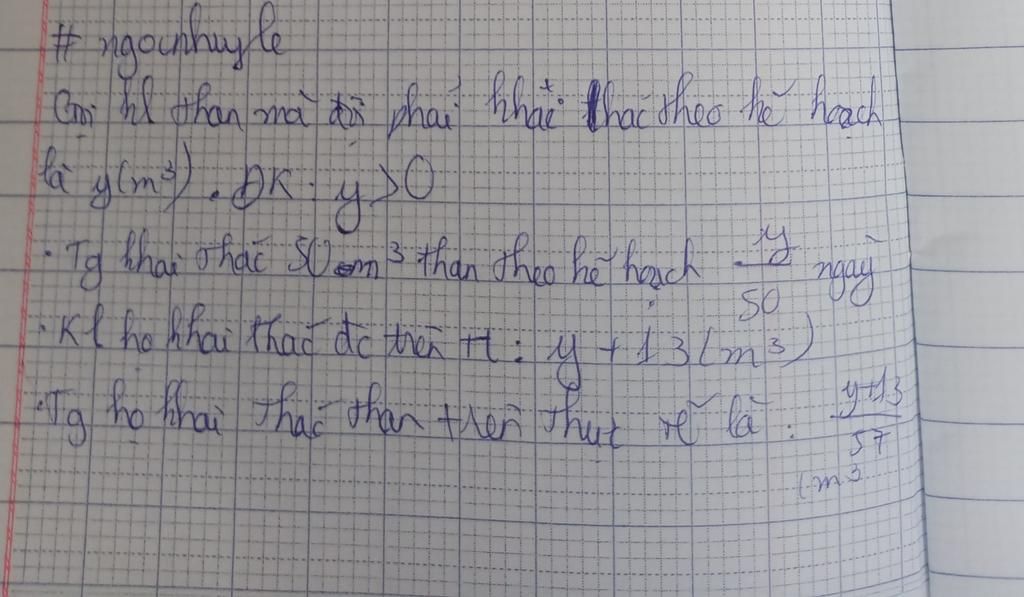 # ngocnhuyle
Gọi kl than mà đội phải khai thác theo kế hoạch
là y(m³). ĐK: y>0
. Tg khai thác 50 m³ than theo kế hoạch y/50 ngày
. Kl họ khai thác đc trên tt: y + 13 (m³)
. Tg họ khai thác than trên thực tế là: y+13/57
(m³